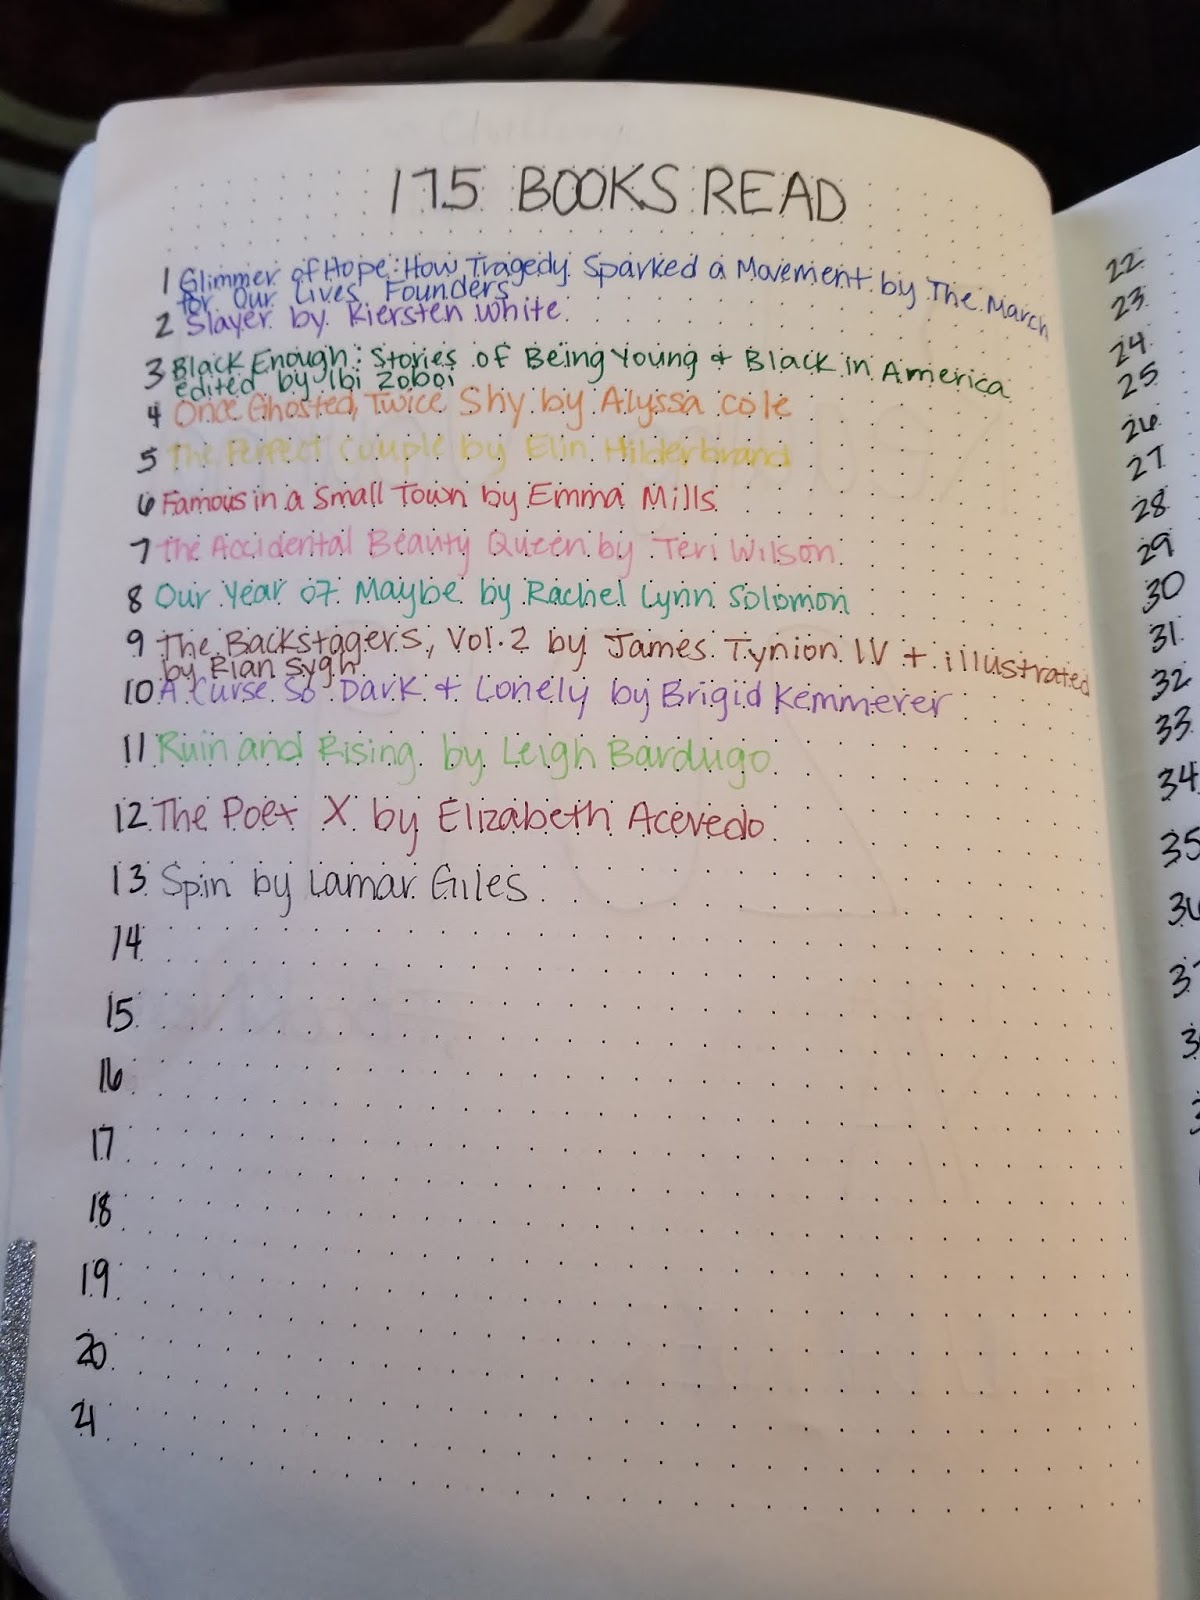 175 BOOKS READ
1 Glimmer of Hope: How Tragedy Sparked a Movement by The March
for Our Lives Founders
2 Slayer by Kiersten White
3 Black Enough: Stories of Being Young + Black in America
edited by Ibi Zoboi
4 Once Ghosted, Twice Shy by Alyssa Cole
5 The Perfect Couple by Elin Hilderbrand
6 Famous in a Small Town by Emma Mills
7 The Accidental Beauty Queen by Teri Wilson
8 Our Year of Maybe by Rachel Lynn Solomon
9 The Backstagers, Vol. 2 by James Tynion IV + illustrated
by Rian Sygh
10 A Curse So Dark + Lonely by Brigid Kemmerer
11 Ruin and Rising by Leigh Bardugo
12 The Poet X by Elizabeth Acevedo
13 Spin by Lamar Giles
14
15
16
17
18
19
20
21
22
23
24
25
26
27
28
29
30
31
32
33
34
35